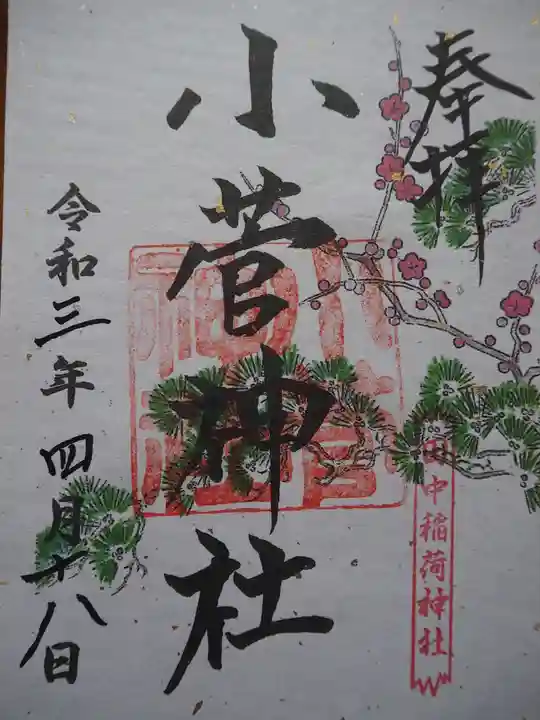 奉拝
田中稲荷神社
小菅神社
令和三年四月十八日